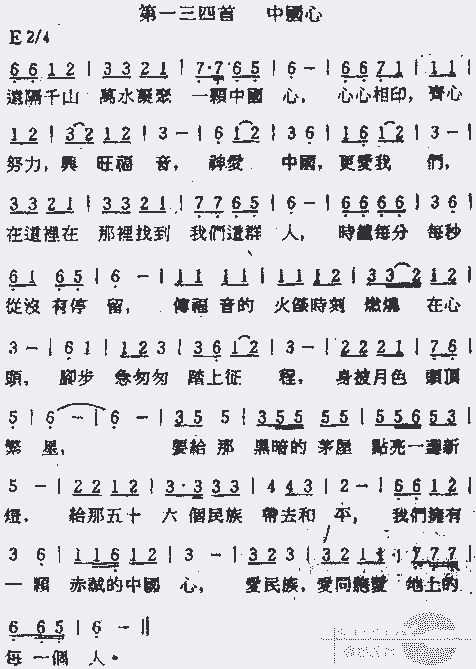 第一三四首 中國心
E 2/4
6 6 1 2 | 3 3 2 1 | 7·7 6 5 | 6 - | 6 6 7 1 | 1 1 |
遠隔千山 萬水凝聚 一顆中國 心， 心心相印，齊心
1 2 | 3 2 1 2 | 3 - | 6 1 2 | 3 6 | 1 6 1 2 | 3 - |
努力，興 旺福 音，神愛 中國，更愛我 們，
3 3 2 1 | 3 3 2 1 | 7 7 6 5 | 6 - | 6 6 6 6 | 3 6 |
在這裡在 那裡找到 我們這群 人， 時鐘每分 每秒
6 1 6 5 | 6 - | 1 1 1 1 | 1 1 1 2 | 3 3 2 1 2 |
從沒 有停 留， 傳福 音的 火儀時刻 燃燒 在心
3 - | 6 1 | 1 2 3 | 3 6 1 2 | 3 - | 2 2 2 1 | 7 6 |
頭， 腳步 急匆匆 踏上征 程， 身披月色 頭頂
5 | 6 - | 6 - | 3 5 5 | 3 5 5 5 | 5 5 6 5 3 |
繁 星， 要給 那 黑暗的 茅屋 點亮一盞新
5 - | 2 2 1 2 | 3·3 3 3 | 4 4 3 | 2 - | 6 6 1 2 |
燈， 給那五十 六個民族 帶去和 平， 我們擁有
3 6 | 1 1 6 1 2 | 3 - | 3 2 3 | 3 2 1 1 · 7 7 7 |
一顆 赤誠的中國 心， 愛民族，愛同胞愛 地上的
6 6 5 | 6 - ||
每一個 人。